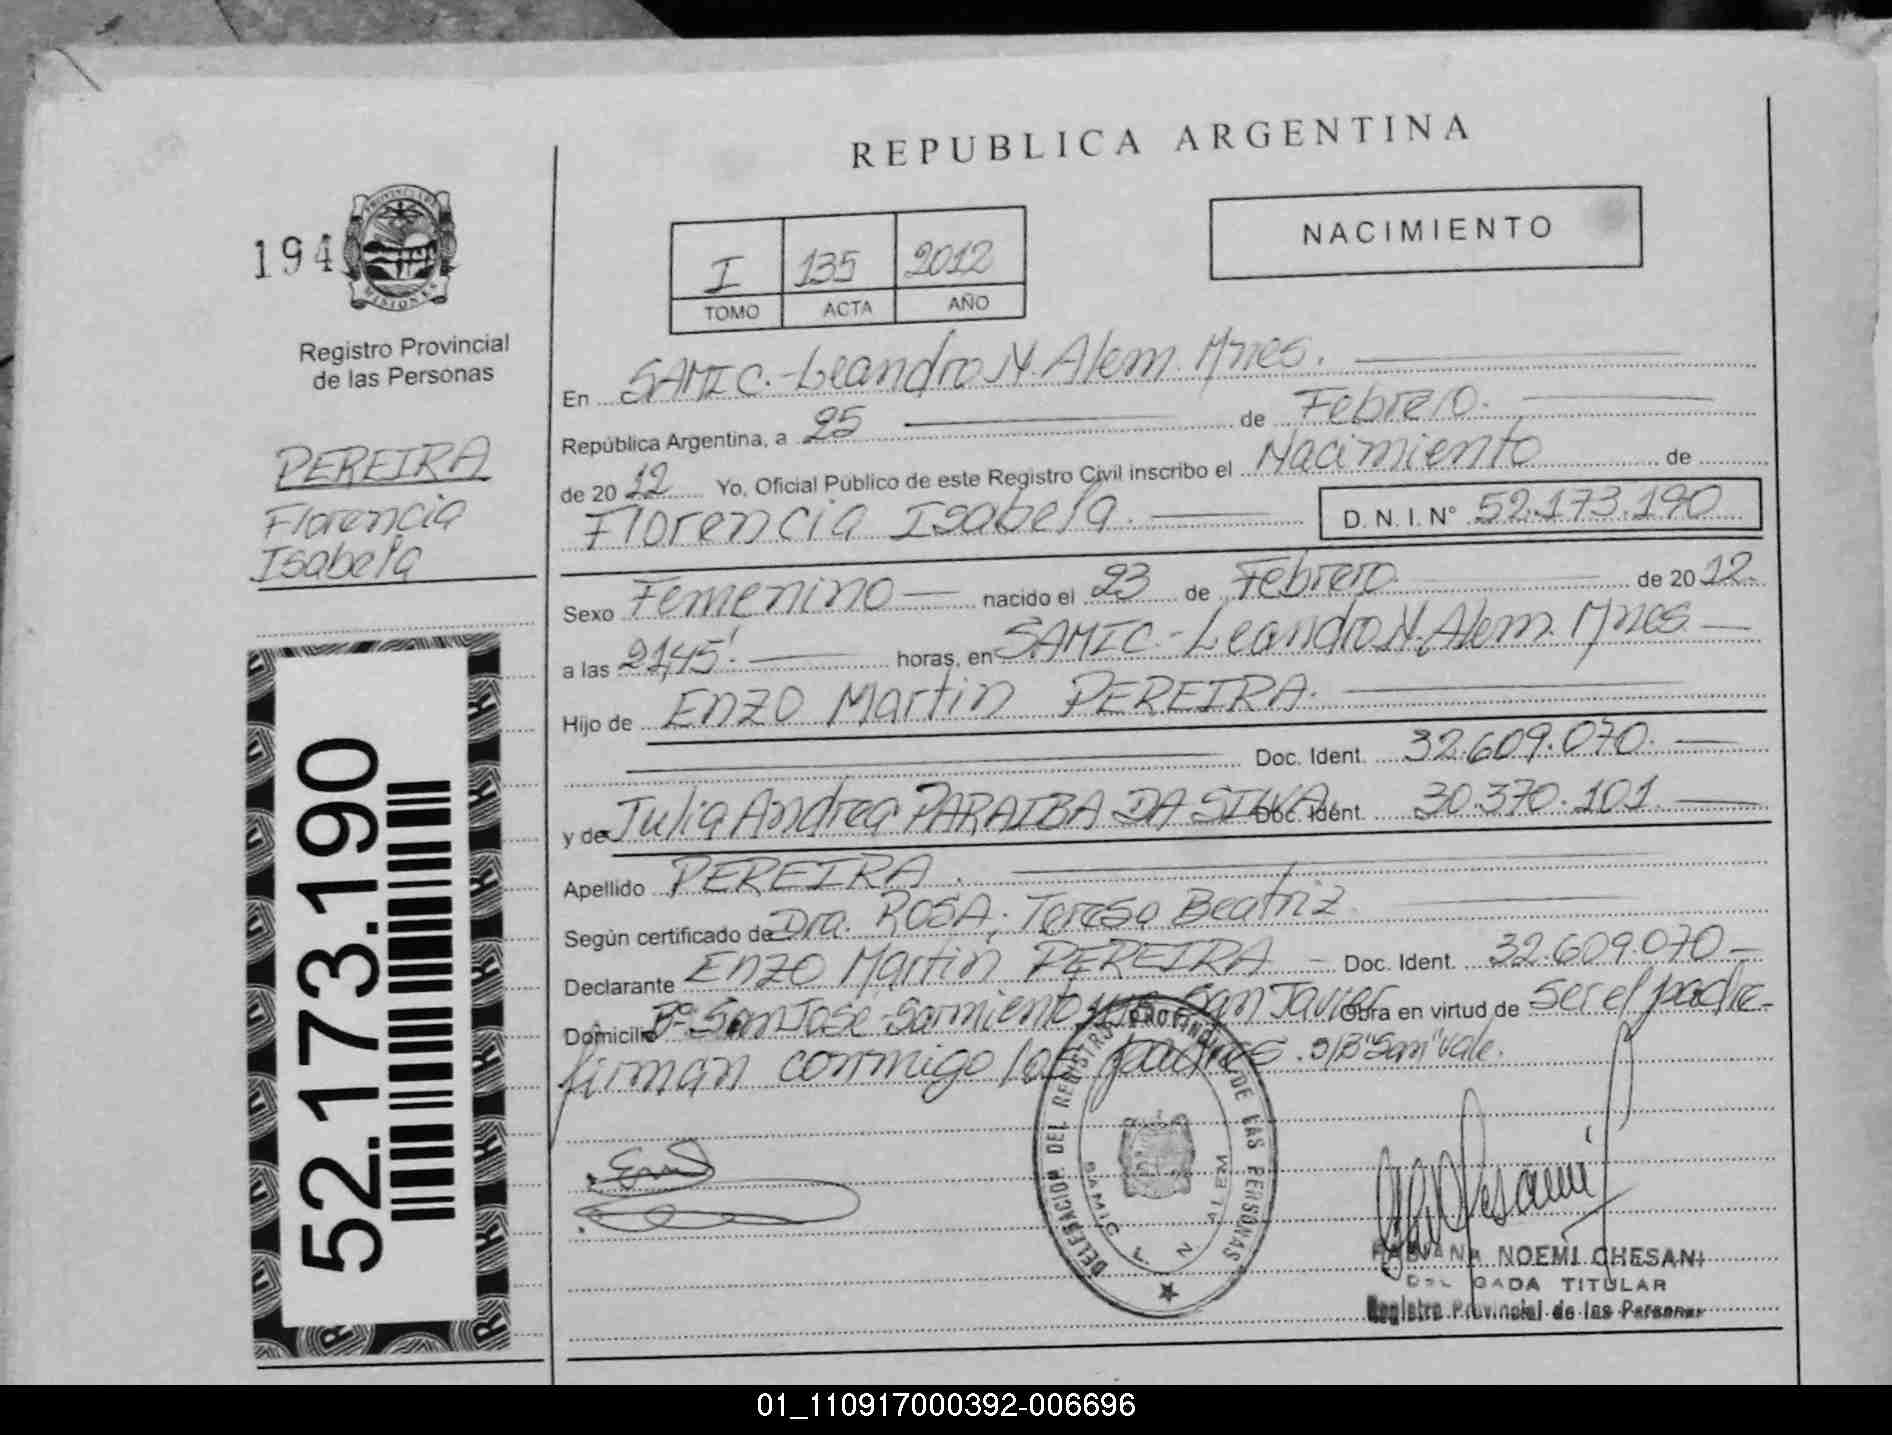 REPUBLICA ARGENTINA
194
PROVINCIA DE
MISIONES
Registro Provincial
de las Personas
I 135 2012
TOMO ACTA AÑO
NACIMIENTO
PEREIRA
Florencia
Isabela
52.173.190
En SAMIC.-Leandro N. Alem. Mnes.
República Argentina, a 25 de Febrero.
de 2012 Yo, Oficial Público de este Registro Civil inscribo el Nacimiento de
Florencia Isabela. D.N.I. Nº 52.173.190
Sexo Femenino nacido el 23 de Febrero de 2012.
a las 21,45'. horas, en SAMIC.-Leandro N. Alem. Mnes
Hijo de Enzo Martin PEREIRA.
Doc. Ident. 32.609.070.
y de Julia Andrea PARAIBA DA SILVA. Doc. Ident. 30.370.101
Apellido PEREIRA.
Según certificado de Dra. ROSA, Teresa Beatriz.
Declarante Enzo Martin PEREIRA - Doc. Ident. 32.609.070
Domicilio Bº San Jose-Sarmiento San Javier Obra en virtud de Ser el padre-
firman conmigo los padres. S/B "San" vale.
DELEGACION DEL REGISTRO PROVINCIAL DE LAS PERSONAS
SAMIC L. N. ALEM
FABIANA NOEMI CHESANI
DELEGADA TITULAR
Registro Provincial de las Personas
01_110917000392-006696